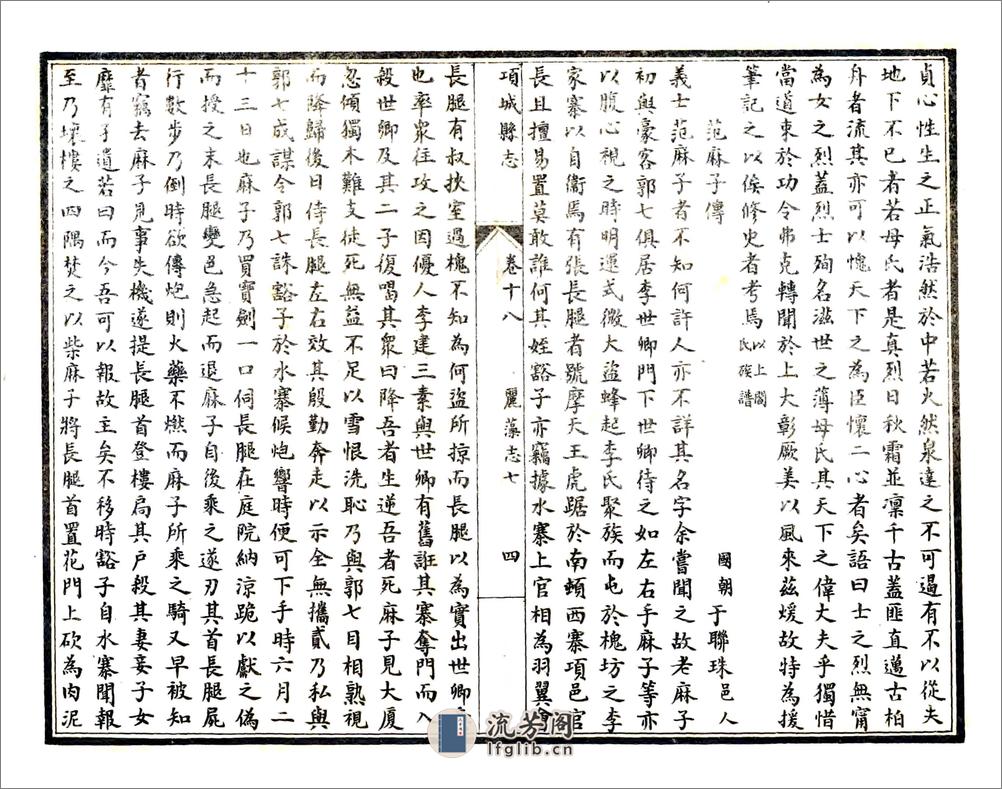 貞心性生之正氣浩然於中若火然泉達之不可遏有不以從夫
地下不已者若母氏者是真烈日秋霜並凜千古蓋匪直邁古柏
舟者流其亦可以愧天下之為臣懷二心者矣語曰士之烈無甯
為女之烈蓋烈士殉名滋世之薄母氏其天下之偉大夫乎獨惜
當道束於功令弗克轉聞於上大彰厥美以風來茲煖故特為援
筆記之以俟修史者考焉以上閻氏族譜
范麻子傳
國朝于聯珠邑人
義士范麻子者不知何許人亦不詳其名字余嘗聞之故老麻子
初與豪客郭七俱居李世卿門下世卿待之如左右手麻子等亦
以腹心視之時明運式微大盜蜂起李氏聚族而屯於槐坊之李
家寨以自衛焉有張長腿者號摩天王虎踞於南頓西寨項邑官
長且擅易置莫敢誰何其姪豁子亦竊據水寨上官相為羽翼會
項城縣志
卷十八
麗藻志七
四
長腿有叔挾室過槐不知為何盜所掠而長腿以為實出世卿
也率衆往攻之因優人李建三素與世卿有舊誑其寨奪門而入
殺世卿及其二子復喝其衆曰降吾者生逆吾者死麻子見大厦
忽傾獨木難支徒死無益不足以雪恨洗恥乃與郭七目相熟視
而降歸後日侍長腿左右效其殷勤奔走以示全無攜貳乃私與
郭七成謀令郭七誅豁子於水寨候炮響時便可下手時六月二
十三日也麻子乃買寶劍一口伺長腿在庭院納涼跪以獻之偽
而授之末長腿變色急起而退麻子自後乘之遂刃其首長腿屍
行數步乃倒時欲傳炮則火藥不燃而麻子所乘之騎又早被知
者竊去麻子見事失機遂提長腿首登樓扃其戶殺其妻妾子女
靡有孑遺若曰而今吾可以報故主矣不移時豁子自水寨聞報
至乃壞樓之四隅焚之以柴麻子將長腿首置花門上砍為肉泥
流芳阁
lfglib.cn